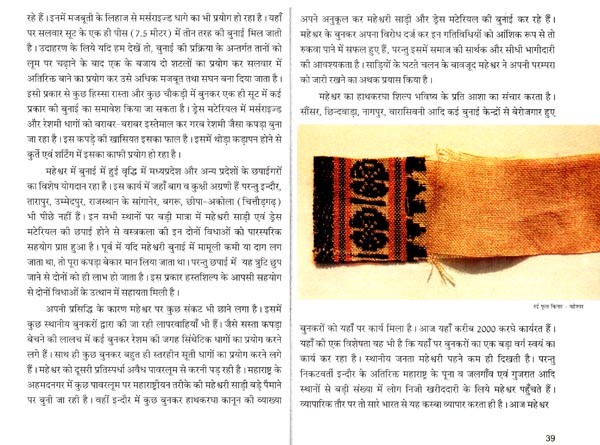 रहे हैं। इनमें मजबूती के लिहाज से मर्सराइज्ड धागे का भी प्रयोग हो रहा है। यहाँ
पर सलवार सूट के एक ही पीस (7.5 मीटर) में तीन तरह की बुनाई मिल जाती
है। उदाहरण के लिये यदि हम देखें तो, बुनाई की प्रक्रिया के अन्तर्गत तानों को
लूम पर चढ़ाने के बाद एक के बजाय दो शटलों का प्रयोग कर सलवार में
अतिरिक्त बाने का प्रयोग कर उसे अधिक मजबूत तथा सघन बना दिया जाता है।
इसी प्रकार से कुछ हिस्सा रास्ता और कुछ चौकड़ी में बुनकर एक ही सूट में कई
प्रकार की बुनाई का समावेश किया जा सकता है। ड्रेस मटेरियल में मर्सराइज्ड
और रेशमी धागों को बराबर-बराबर इस्तेमाल कर गरब रेशमी जैसा कपड़ा बुना
जा रहा है। इस कपड़े की खासियत इसका फाल है। इसमें थोड़ा कड़ापन होने से
कुर्ते एवं शर्टिंग में इसका काफी प्रयोग हो रहा है।
महेश्वर में बुनाई में हुई वृद्धि में मध्यप्रदेश और अन्य प्रदेशों के छपाईगरों
का विशेष योगदान रहा है। इस कार्य में जहाँ बाग व कुक्षी अग्रणी हैं परन्तु इन्दौर,
तारापुर, उम्मेदपुर, राजस्थान के सांगानेर, बगरू, छीपा-अकोला (चित्तौड़गढ़)
भी पीछे नहीं हैं। इन सभी स्थानों पर बड़ी मात्रा में महेश्वरी साड़ी एवं ड्रेस
मटेरियल की छपाई होने से वस्त्रकला की इन दोनों विधाओं को पारस्परिक
सहयोग प्राप्त हुआ है। पूर्व में यदि महेश्वरी बुनाई में मामूली कमी या दाग लग
जाता था, तो पूरा कपड़ा बेकार मान लिया जाता था। परन्तु छपाई में यह त्रुटि छुप
जाने से दोनों को ही लाभ हो जाता है। इस प्रकार हस्तशिल्प के आपसी सहयोग
से दोनों विधाओं के उत्थान में सहायता मिली है।
अपनी प्रसिद्धि के कारण महेश्वर पर कुछ संकट भी छाने लगा है। इसमें
कुछ स्थानीय बुनकरों द्वारा की जा रही लापरवाहियाँ भी हैं। जैसे सस्ता कपड़ा
बेचने की लालच में कई बुनकर रेशम की जगह सिंथेटिक धागों का प्रयोग करने
लगे हैं। साथ ही कुछ बुनकर बहुत ही स्तरहीन सूती धागों का प्रयोग करने लगे
हैं। महेश्वर को दूसरी प्रतिस्पर्धा अवैध पावरलूम से करनी पड़ रही है। महाराष्ट्र के
अहमदनगर में कुछ पावरलूम पर महाराष्ट्रीयन तरीके की महेश्वरी साड़ी बड़े पैमाने
पर बुनी जा रही है। वहीं इन्दौर में कुछ बुनकर हाथकरघा कानून की व्याख्या
अपने अनुकूल कर महेश्वरी साड़ी और ड्रेस मटेरियल की बुनाई कर रहे हैं।
महेश्वर के बुनकर अपना विरोध दर्ज कर इन गतिविधियों को आँशिक रूप से तो
रुकवा पाने में सफल हुए हैं, परन्तु इसमें समाज की सार्थक और सीधी भागीदारी
की आवश्यकता है। साड़ियों के घटते चलन के बावजूद महेश्वर ने अपनी परम्परा
को जारी रखने का अथक प्रयास किया है।
महेश्वर का हाथकरघा शिल्प भविष्य के प्रति आशा का संचार करता है।
सौंसर, छिन्दवाड़ा, नागपुर, वारासिवनी आदि कई बुनाई केन्द्रों से बेरोजगार हुए
रुई फूल किनार - महेश्वर
बुनकरों को यहाँ पर कार्य मिला है। आज यहाँ करीब 2000 करघे कार्यरत हैं।
यहाँ की एक विशेषता यह भी है कि यहाँ पर बुनकरों का एक बड़ा वर्ग स्वयं का
कार्य कर रहा है। स्थानीय जनता महेश्वरी पहने कम ही दिखती है। परन्तु
निकटवर्ती इन्दौर के अतिरिक्त महाराष्ट्र के पूना व जलगाँव एवं गुजरात आदि
स्थानों से बड़ी संख्या में लोग निजी खरीददारी के लिये महेश्वर पहुँचते हैं।
व्यापारिक तौर पर तो सारे भारत से यह कस्बा व्यापार करता ही है। आज महेश्वर
39